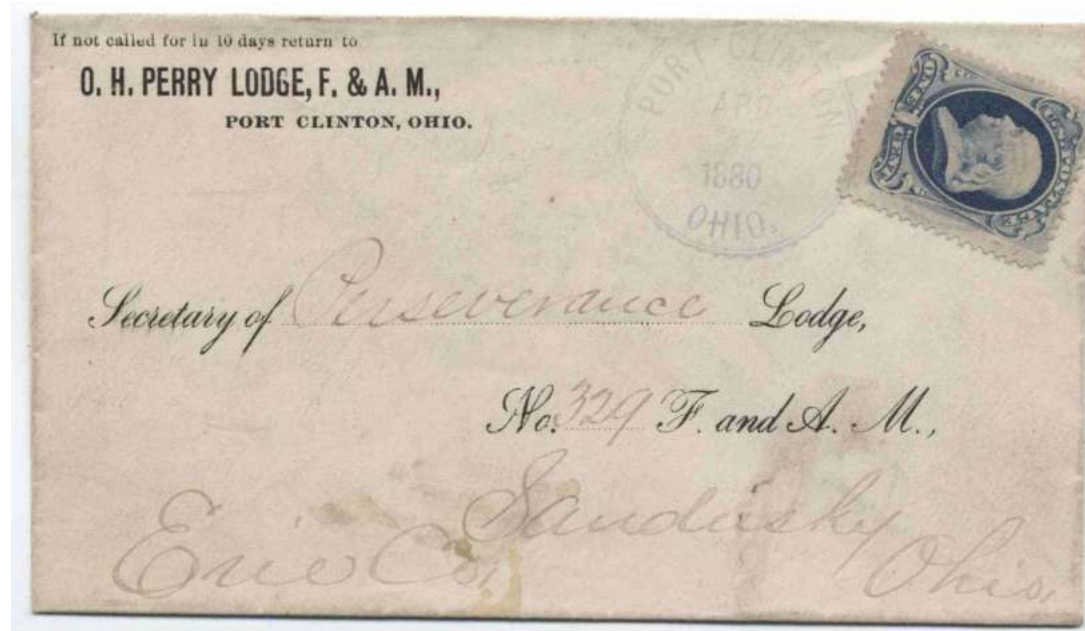 If not called for in 10 days return to
O. H. PERRY LODGE, F. & A. M.,
PORT CLINTON, OHIO.
PORT CLINTON
APR
1880
OHIO.
U.S. POSTAGE
ONE CENT
Secretary of Perseverance Lodge,
No. 329 F. and A. M.,
Sandusky
Erie Co. Ohio